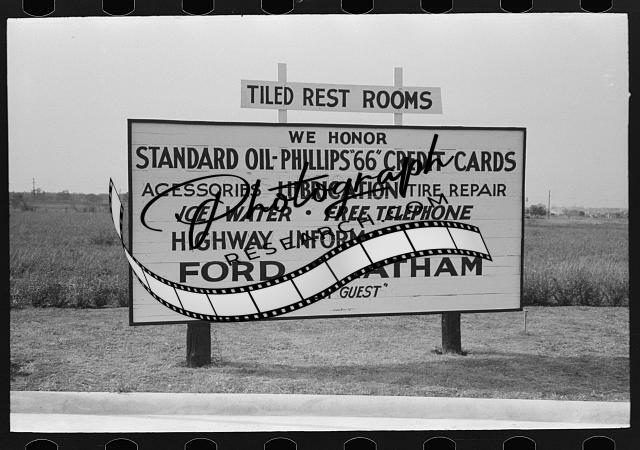 TILED REST ROOMS
WE HONOR
STANDARD OIL-PHILLIPS "66" CREDIT CARDS
ACESSORIES LUBRICATION TIRE REPAIR
ICE WATER • FREE TELEPHONE
HIGHWAY
FORD
GUEST"
Photograph
RESEARCH.COM